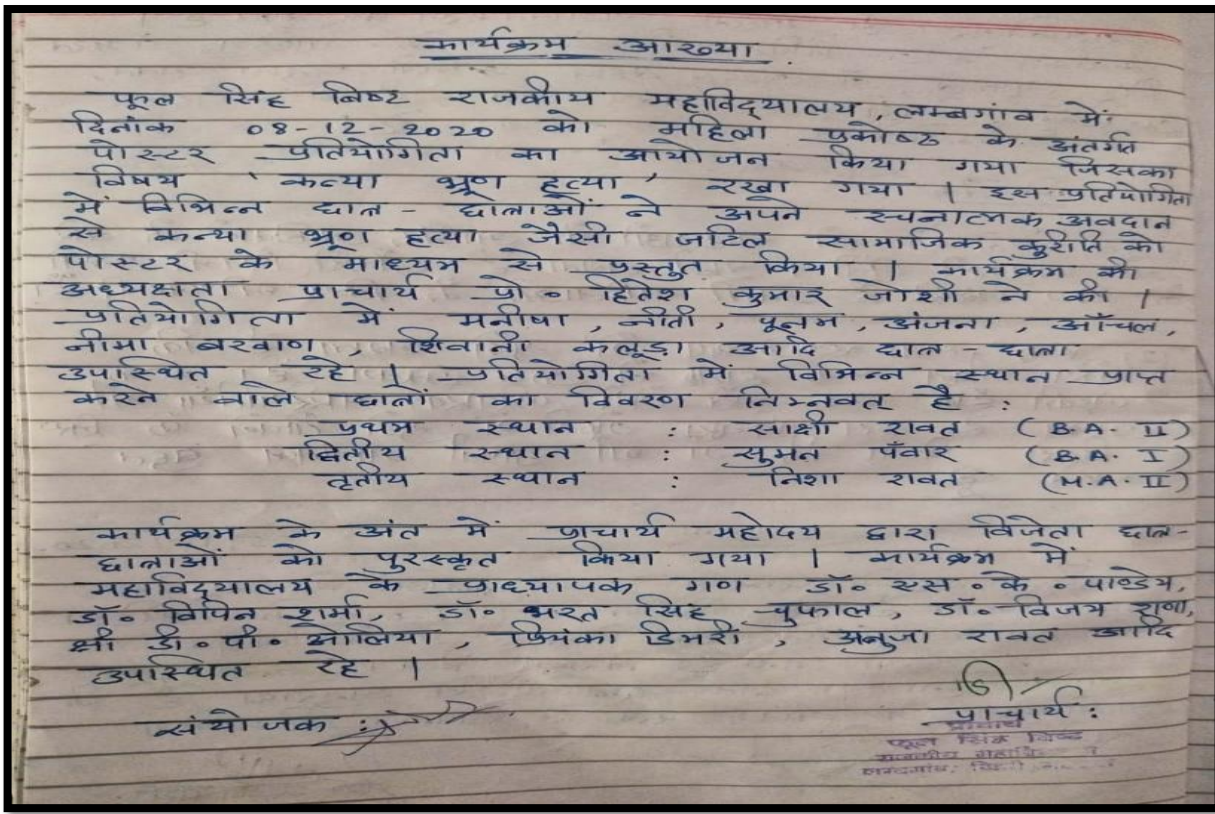 कार्यक्रम आख्या
फूल सिंह बिष्ट राजकीय महाविद्यालय, लम्बगांव में
दिनांक 08-12-2020 को महिला प्रकोष्ठ के अंतर्गत
पोस्टर प्रतियोगिता का आयोजन किया गया जिसका
विषय 'कन्या भ्रूण हत्या' रखा गया । इस प्रतियोगिता
में विभिन्न छात्र - छात्राओं ने अपने रचनात्मक अवदान
से कन्या भ्रूण हत्या जैसी जटिल सामाजिक कुरीति को
पोस्टर के माध्यम से प्रस्तुत किया । कार्यक्रम की
अध्यक्षता प्राचार्य प्रो० हितेश कुमार जोशी ने की ।
प्रतियोगिता में मनीषा, नीती, पूनम, अंजना, आँचल,
नीमा बरवाण, शिवानी कलूड़ा आदि छात्र - छात्रा
उपास्थित रहे । प्रतियोगिता में विभिन्न स्थान प्राप्त
करने वाले छात्रों का विवरण निम्नवत् है :
प्रथम स्थान : साक्षी रावत (B.A. II)
द्वितीय स्थान : सुमन पँवार (B.A. I)
तृतीय स्थान : निशा रावत (M.A. II)
कार्यक्रम के अंत में प्राचार्य महोदय द्वारा विजेता छात्र-
छात्राओं को पुरस्कृत किया गया । कार्यक्रम में
महाविद्यालय के प्राध्यापक गण डॉ० एस० के० पाण्डेय,
डॉ० विपिन शर्मा, डॉ० भरत सिंह चुफाल, डॉ० विजय राणा,
श्री डी० पी० ओलिया, प्रियंका डिमरी, अनुजा रावत आदि
उपास्थित रहे ।
संयोजक :
प्राचार्य :
प्राचार्य
फूल सिंह बिष्ट
राजकीय
लम्बगांव,